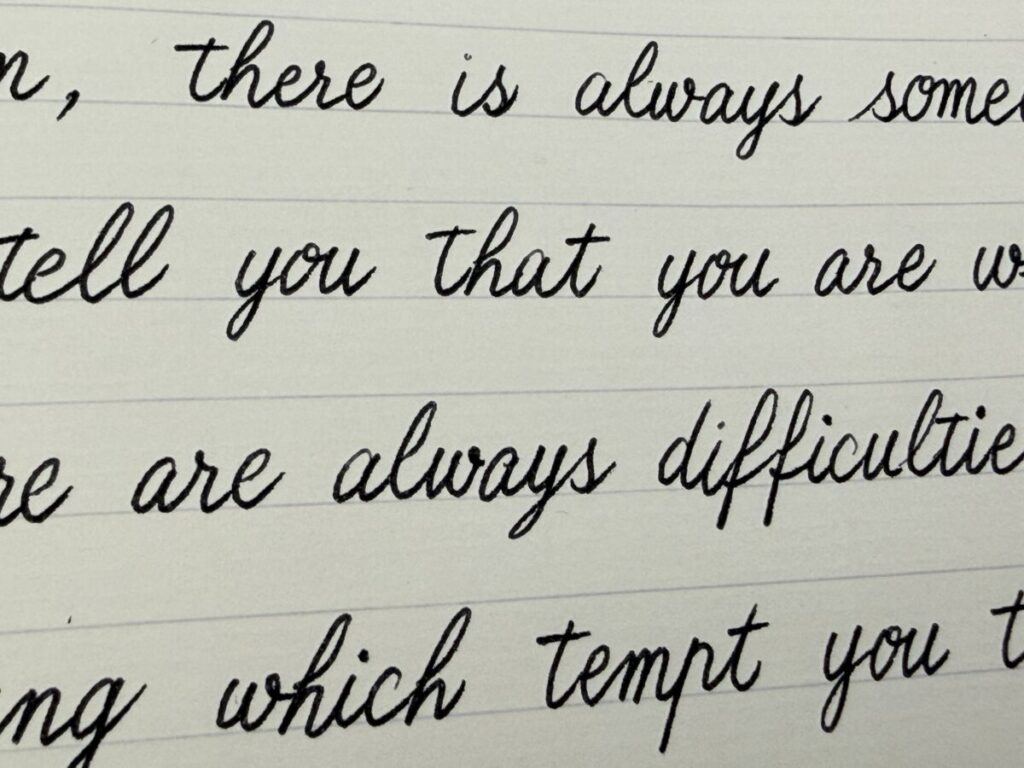 n, there is always some
tell you that you are w
re are always difficultie
ing which tempt you t